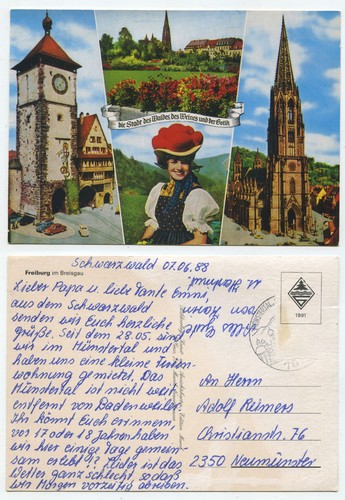 die Stadt des Waldes, des Weines und der Gotik
Freiburg im Breisgau
Schwarzwald 07.06.88
Lieber Papa u. liebe Tante Emmi,
aus dem Schwarzwald
senden wir Euch herzliche
Grüße. Seit dem 28.05. sind
wir im Münstertal und
haben uns eine kleine Ferien-
wohnung gemietet. Das
Münstertal ist nicht weit
entfernt von Badenweiler.
Ihr könnt Euch erinnern,
vor 17 oder 18 Jahren haben
wir hier einige Tage gemein-
sam erlebt. Leider ist das
Wetter ganz schlecht, so daß
wir Morgen vorzeitig abreisen.
Alles Gute
von Horst
u. Hartmut
1991
An Herrn
Adolf Reimers
Christianstr. 76
2350 Neumünster